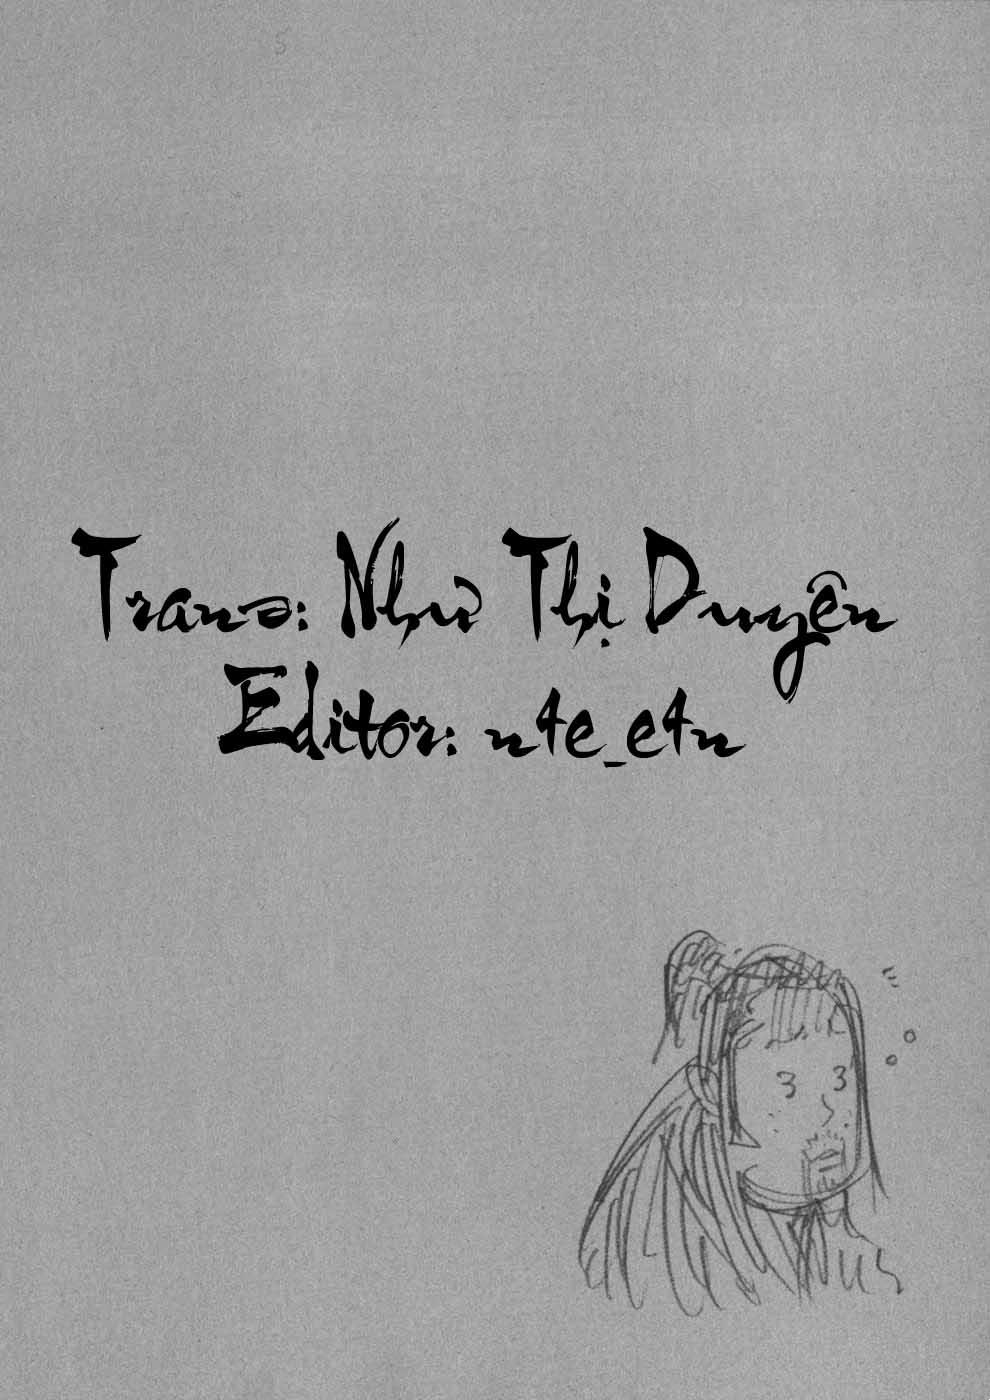 Trans: Như Thị Duyên
Editor: n4e_e4n